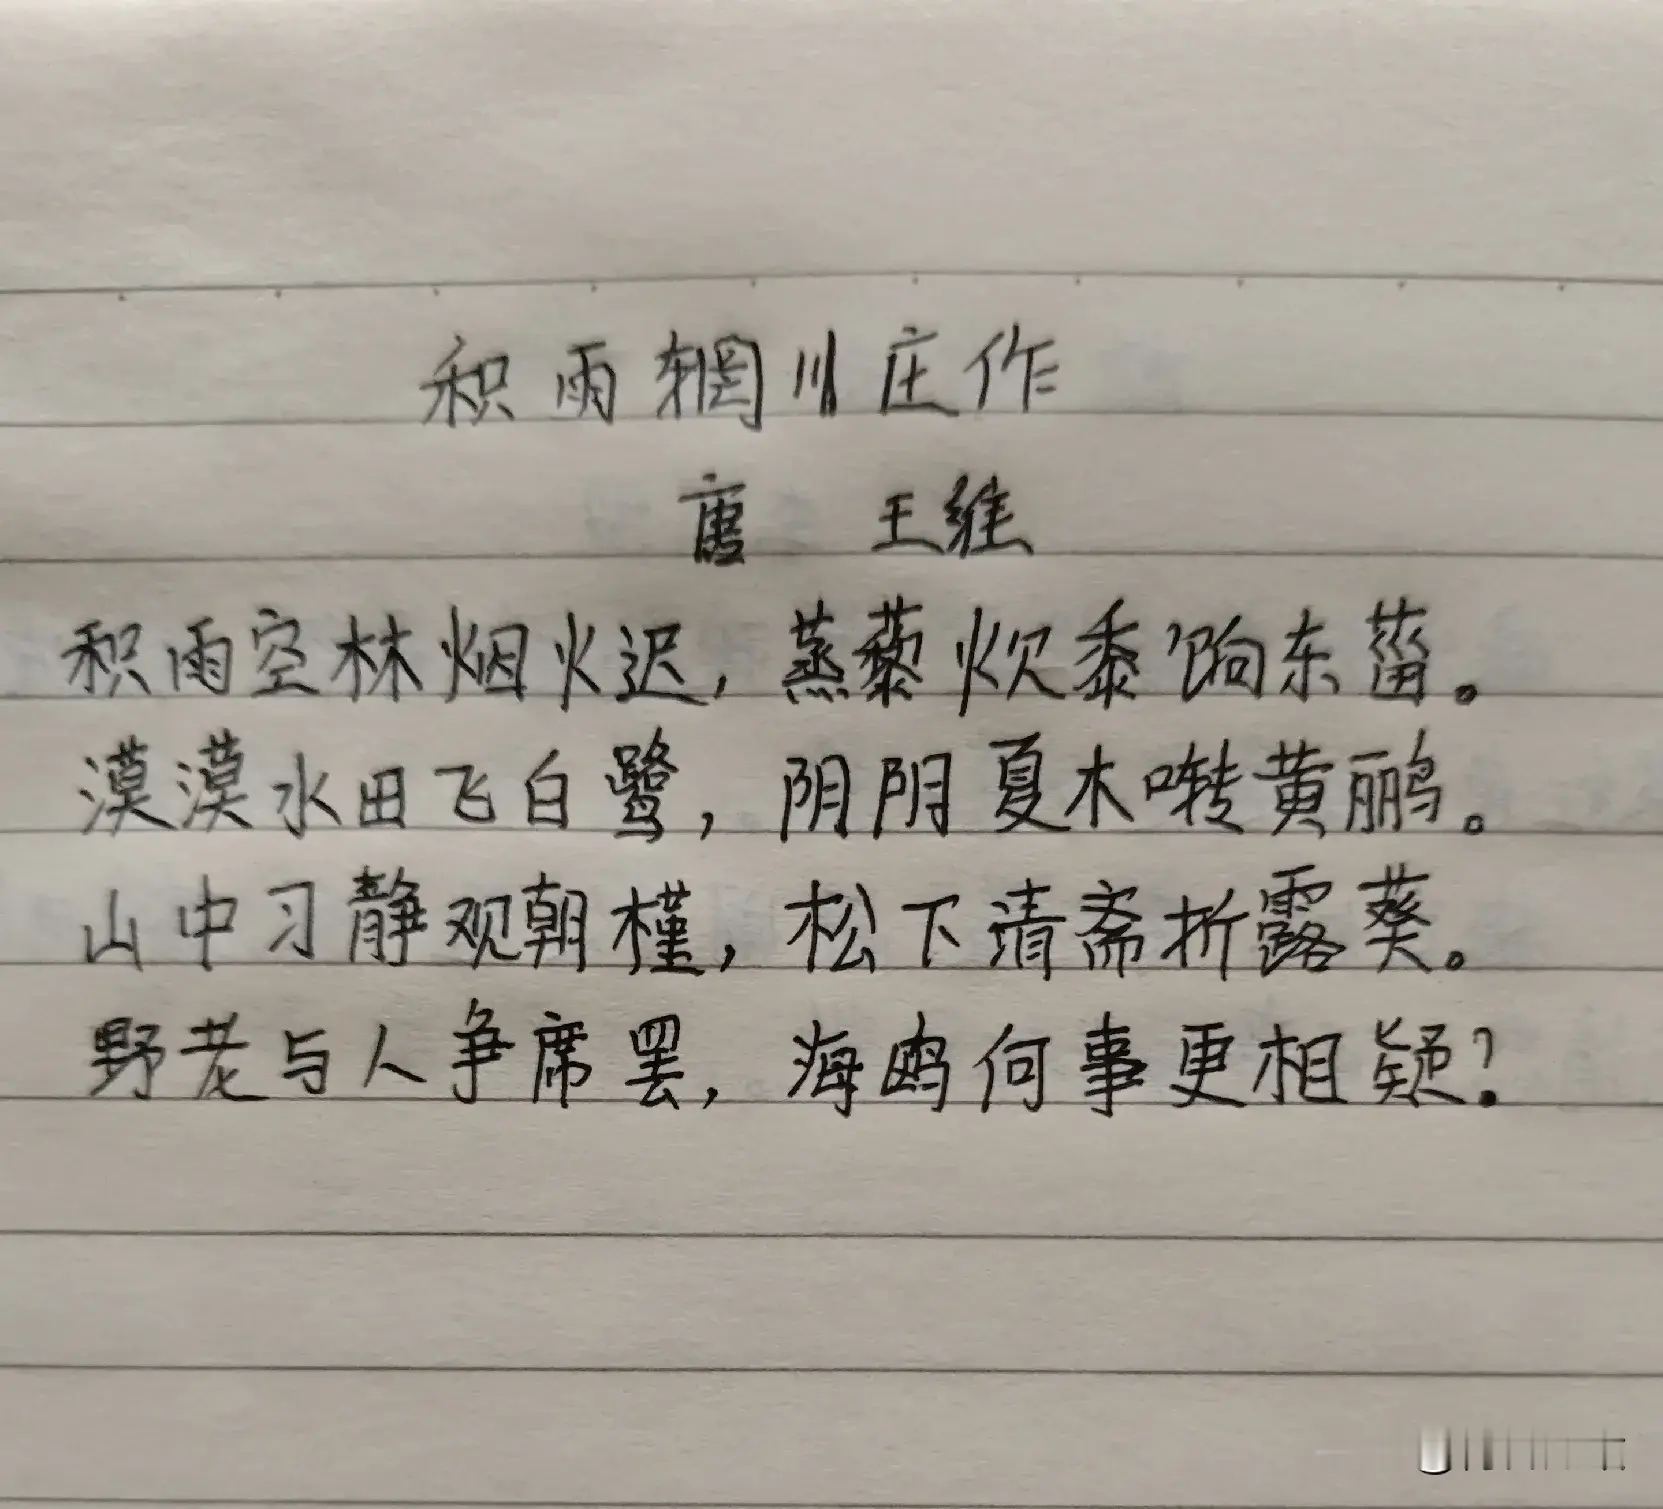 积雨辋川庄作
唐 王维
积雨空林烟火迟，蒸藜炊黍饷东菑。
漠漠水田飞白鹭，阴阴夏木啭黄鹂。
山中习静观朝槿，松下清斋折露葵。
野老与人争席罢，海鸥何事更相疑？